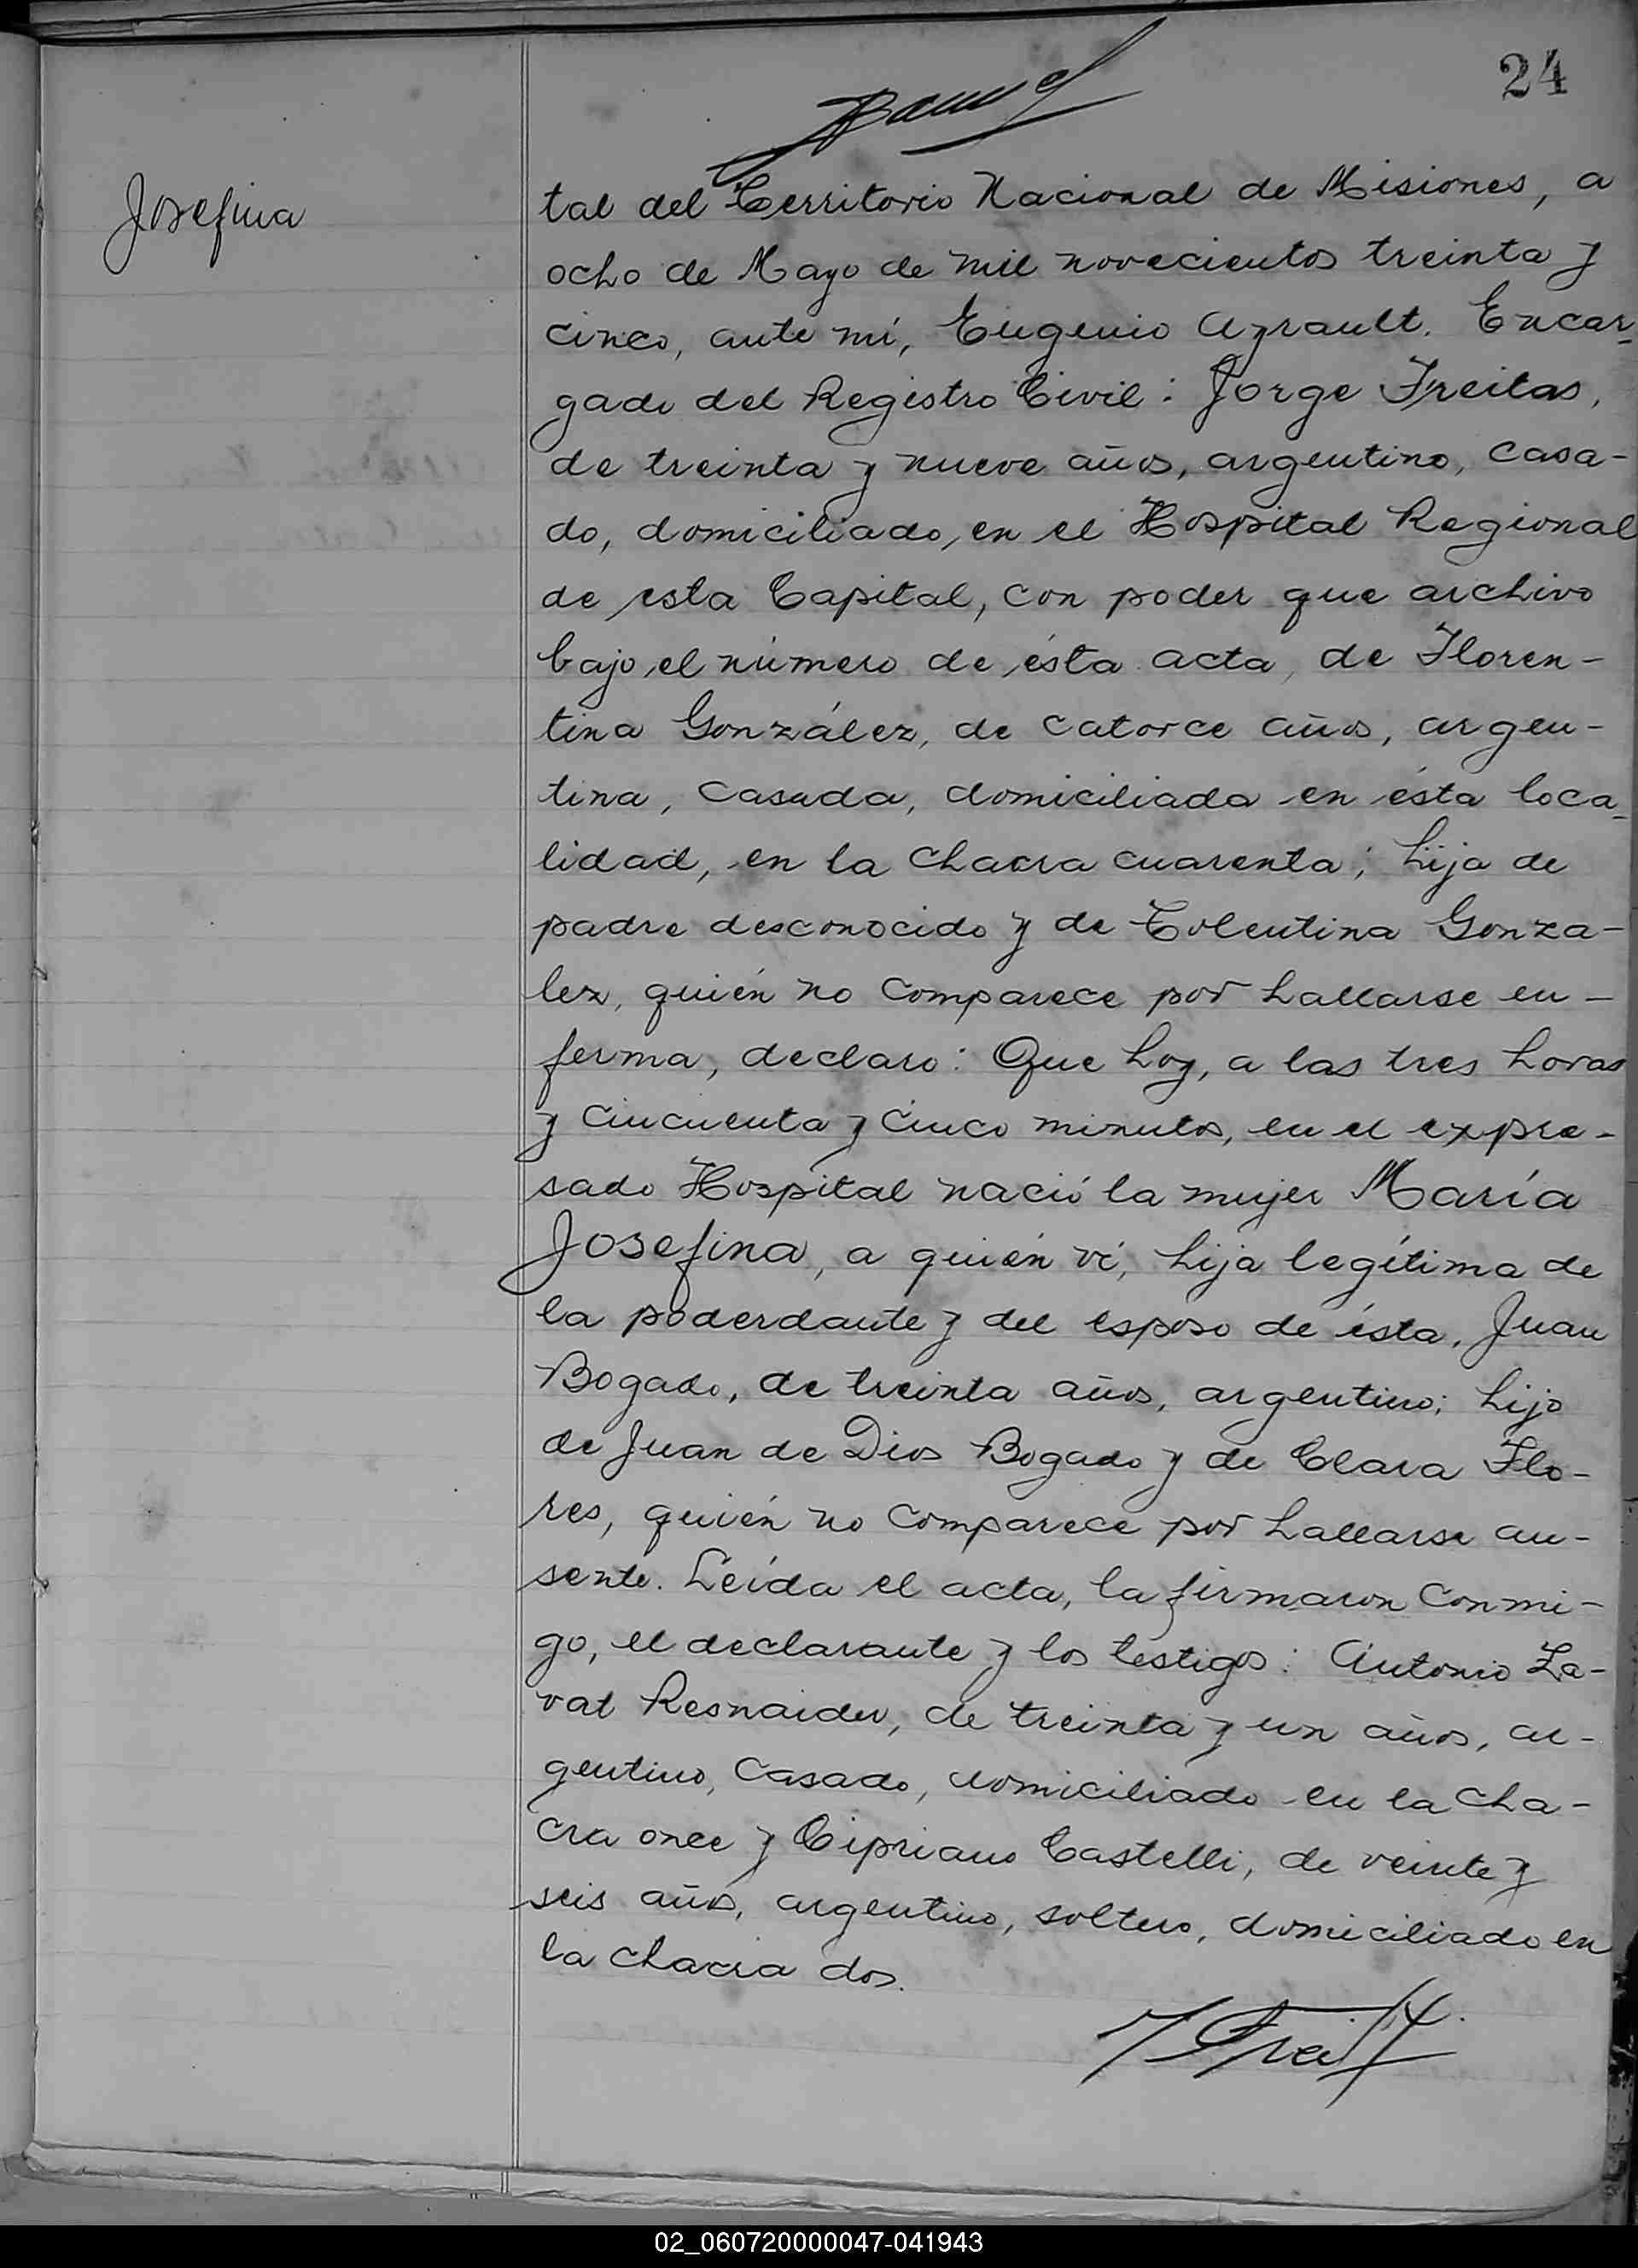 24
Josefina
tal del Territorio Nacional de Misiones, a
ocho de Mayo de mil novecientos treinta y
cinco, ante mí, Eugenio Ayrault, Encar-
gado del Registro Civil: Jorge Freitas,
de treinta y nueve años, argentino, casa-
do, domiciliado, en el Hospital Regional
de esta Capital, con poder que archivo
bajo el número de ésta acta, de Floren-
tina González, de catorce años, argen-
tina, casada, domiciliada en ésta loca-
lidad, en la chacra cuarenta; hija de
padre desconocido y de Tolentina Gonza-
lez, quién no comparece por hallarse en-
ferma, declaro: Que hoy, a las tres horas
y cincuenta y cinco minutos, en el expre-
sado Hospital nació la mujer María
Josefina, a quién ví, hija legítima de
la poderdante y del esposo de ésta, Juan
Bogado, de treinta años, argentino; hijo
de Juan de Dios Bogado y de Clara Flo-
res, quién no comparece por hallarse au-
sente. Leída el acta, la firmaron conmi-
go, el declarante y los testigos: Antonio Za-
val Resnaider, de treinta y un años, ar-
gentino, casado, domiciliado en la cha-
cra once y Cipriano Castelli, de veinte y
seis años, argentino, soltero, domiciliado en
la chacra dos.
02_060720000047-041943